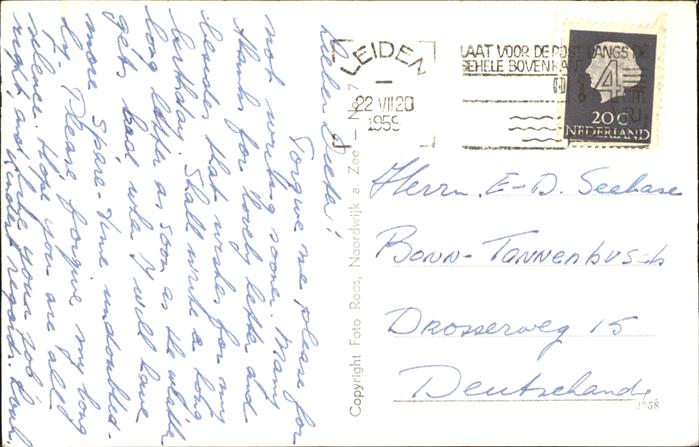 Forgive me please for
not writing sooner. Many
thanks for lovely letter and
besides that wishes for my
birthday. Shall write a long
long letter as soon as the weather
gets bad, when I will have
more spare-time undoubted-
ly. Please, forgive my long
silence. Hope you are all
right and
regards.
LEIDEN
22 VII 20
1959
LAAT VOOR DE POST LANGS DE
GEHELE BOVENKANT
4
20 C
NEDERLAND
Herrn. E-D. Seehase
Bonn-Tannenbusch
Drosselweg 15
Deutschland
1958
Copyright Foto Roos, Noordwijk a. Zee – No. 7